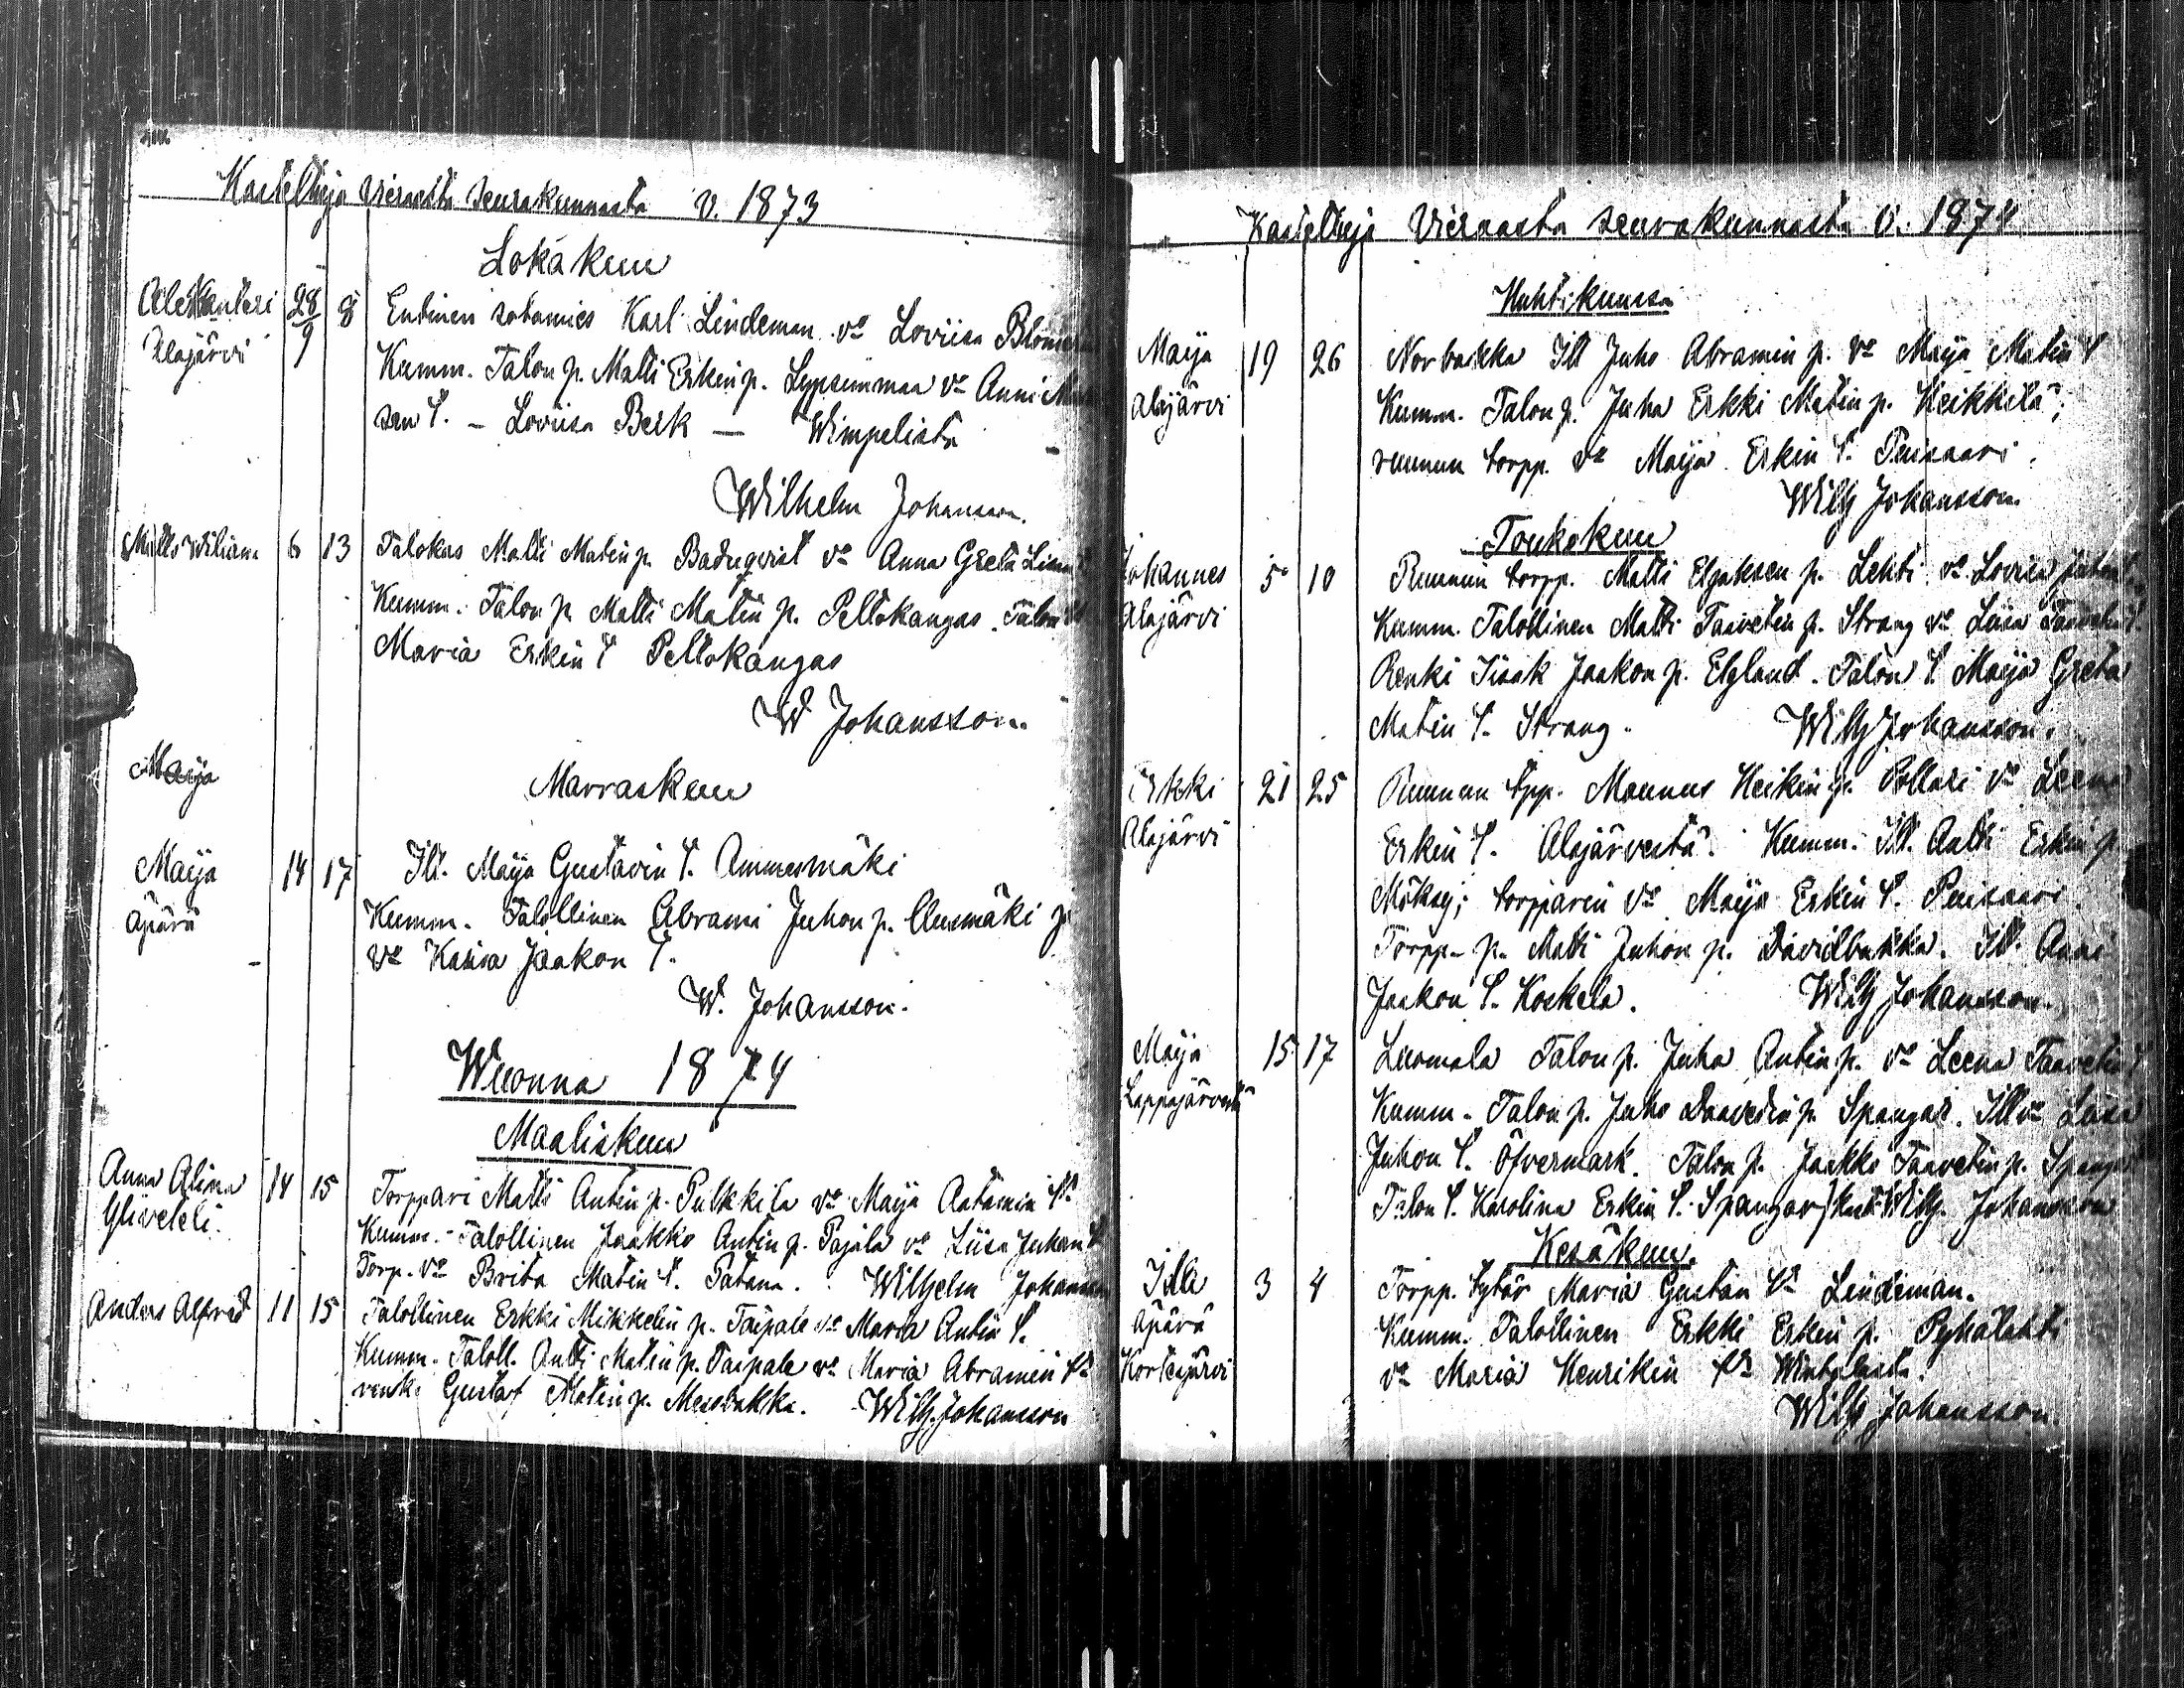 Kastettuja Vieraasta seurakunnasta v. 1873
Lokakuu
Aleksanteri 28/9 8 Entinen sotamies Karl Lindeman vo Loviisa
Alajärvi Kumm. Talon p. Matti Erkin p. Lypsinmaa vo Anni
sen t. – Loviisa Berk – Wimpelistä
Wilhelm Johansson.
Matts Wiliam 6 13 Talokas Matti Matin p. Badnqvist vo Anna Greta
Kumm. Talon p. Matti Matin p. Pellokangas. Talon
Maria Erkin t Pellokangas
W Johansson.
Maija
Marraskuu
Maija 14 17 Itt. Maija Gustavin t. Ammesmäki
Äpärä Kumm. Talollinen Abrami Juhon p. Ausmäki
vo Kaisa Jaakon t.
W. Johansson.
Wuonna 1874
Maaliskuu
Anna Alina 14 15 Torppari Matti Antin p. Pulkkila vo Maija Aatamin tr
Yliveteli. Kumm. Talollinen Jaakko Antin p. Pajala vo Liisa Juhan t
Torp. vo Brita Matin t. Patana. Wilhelm Johansson
Anders Alfred 11 15 Talollinen Erkki Mikkelin p. Taipale vo Maria Antin t.
Kumm. Taloll. Antti Matin p. Taipale vo Maria Abramin tr
renki Gustaf Matin p. Mesbakka. Wilh. Johansson
Kastettuja Vieraasta seurakunnasta v. 1874
Huhtikuussa
Maija 19 26 Norbakka Itt Juho Abramin p. vo Maija Matin t
Alajärvi Kumm. Talon p. Juha Erkki Matin p. Heikkilä;
ruunun torpp. vo Maija Erkin t. Puisaari.
Wilh Johansson.
Toukokuu
Johannes 5 10 Ruunun torpp. Matti Eljaksen p. Lehti vo Lovisa
Alajärvi Kumm. Talollinen Matti Taavetin p. Strang vo Liisa Taavetin t.
Renki Iisak Jaakon p. Elgland. Talon t Maija Greta
Matin t. Strang. Wilh Johansson.
Erkki 21 25 Ruunun tpp. Maunus Heikin p. Pollari vo Leena
Alajärvi Erkin t. Alajärveltä. Kumm. Itt. Antti Erkin p.
Möksy; torpparin vo Maija Erkin t. Puisaari
Torpp. p. Matti Juhon p. Davidbakka. Itt. Anni
Jaakon t. Koskela. Wilh Johansson.
Maija 15 17 Luomala Talon p. Juha Antin p. vo Leena Taavetin t
Lappajärveltä Kumm. Talon p. Juho Daavedin p. Spangar. Itt vo Liisa
Juhon t. Öfvermark. Talon p. Jaakko Taavetin p. Spangar
Talon t. Karolina Erkin t. Spangar Wilh. Johansson
Kesäkuu.
Iida 3 4 Torpp. tytär Maria Gustan tr Lindeman.
äpärä Kumm. Talollinen Erkki Erkin p. Pyhälahti
Kortesjärvi vo Maria Henrikin tr
Wilh Johansson.